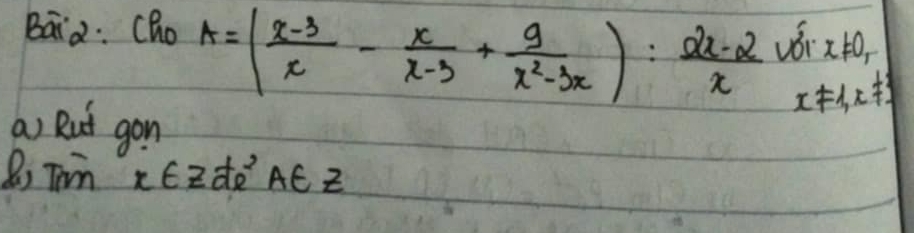 Bài 2: Cho A = ( (x-3)/x - x/(x-3) + 9/(x²-3x) ) : (2x-2)/x với x≠0,
x≠1, x≠
a) Rút gọn
b) Tìm x ∈ Z để A ∈ Z